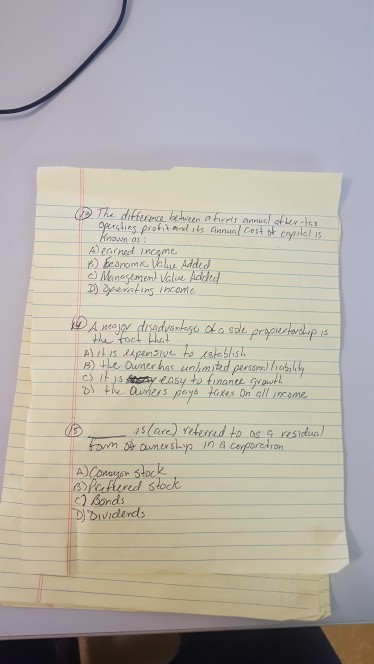 13 The difference between a firm's annual after-tax
operating profit and its annual cost of capital is
known as:
A) earned income
B) Economic Value Added
C) Management Value Added
D) Operating income
14 A major disadvantage of a sole propiertorship is
the fact that
A) it is expensive to establish
B) the Owner has unlimited personal liability
C) it is easy to finance growth
D) the Owners pays taxes on all income
15 ____ is (are) referred to as a residual
form of ownership in a corporation
A) Common stock
B) Preferred stock
C) Bonds
D) Dividends